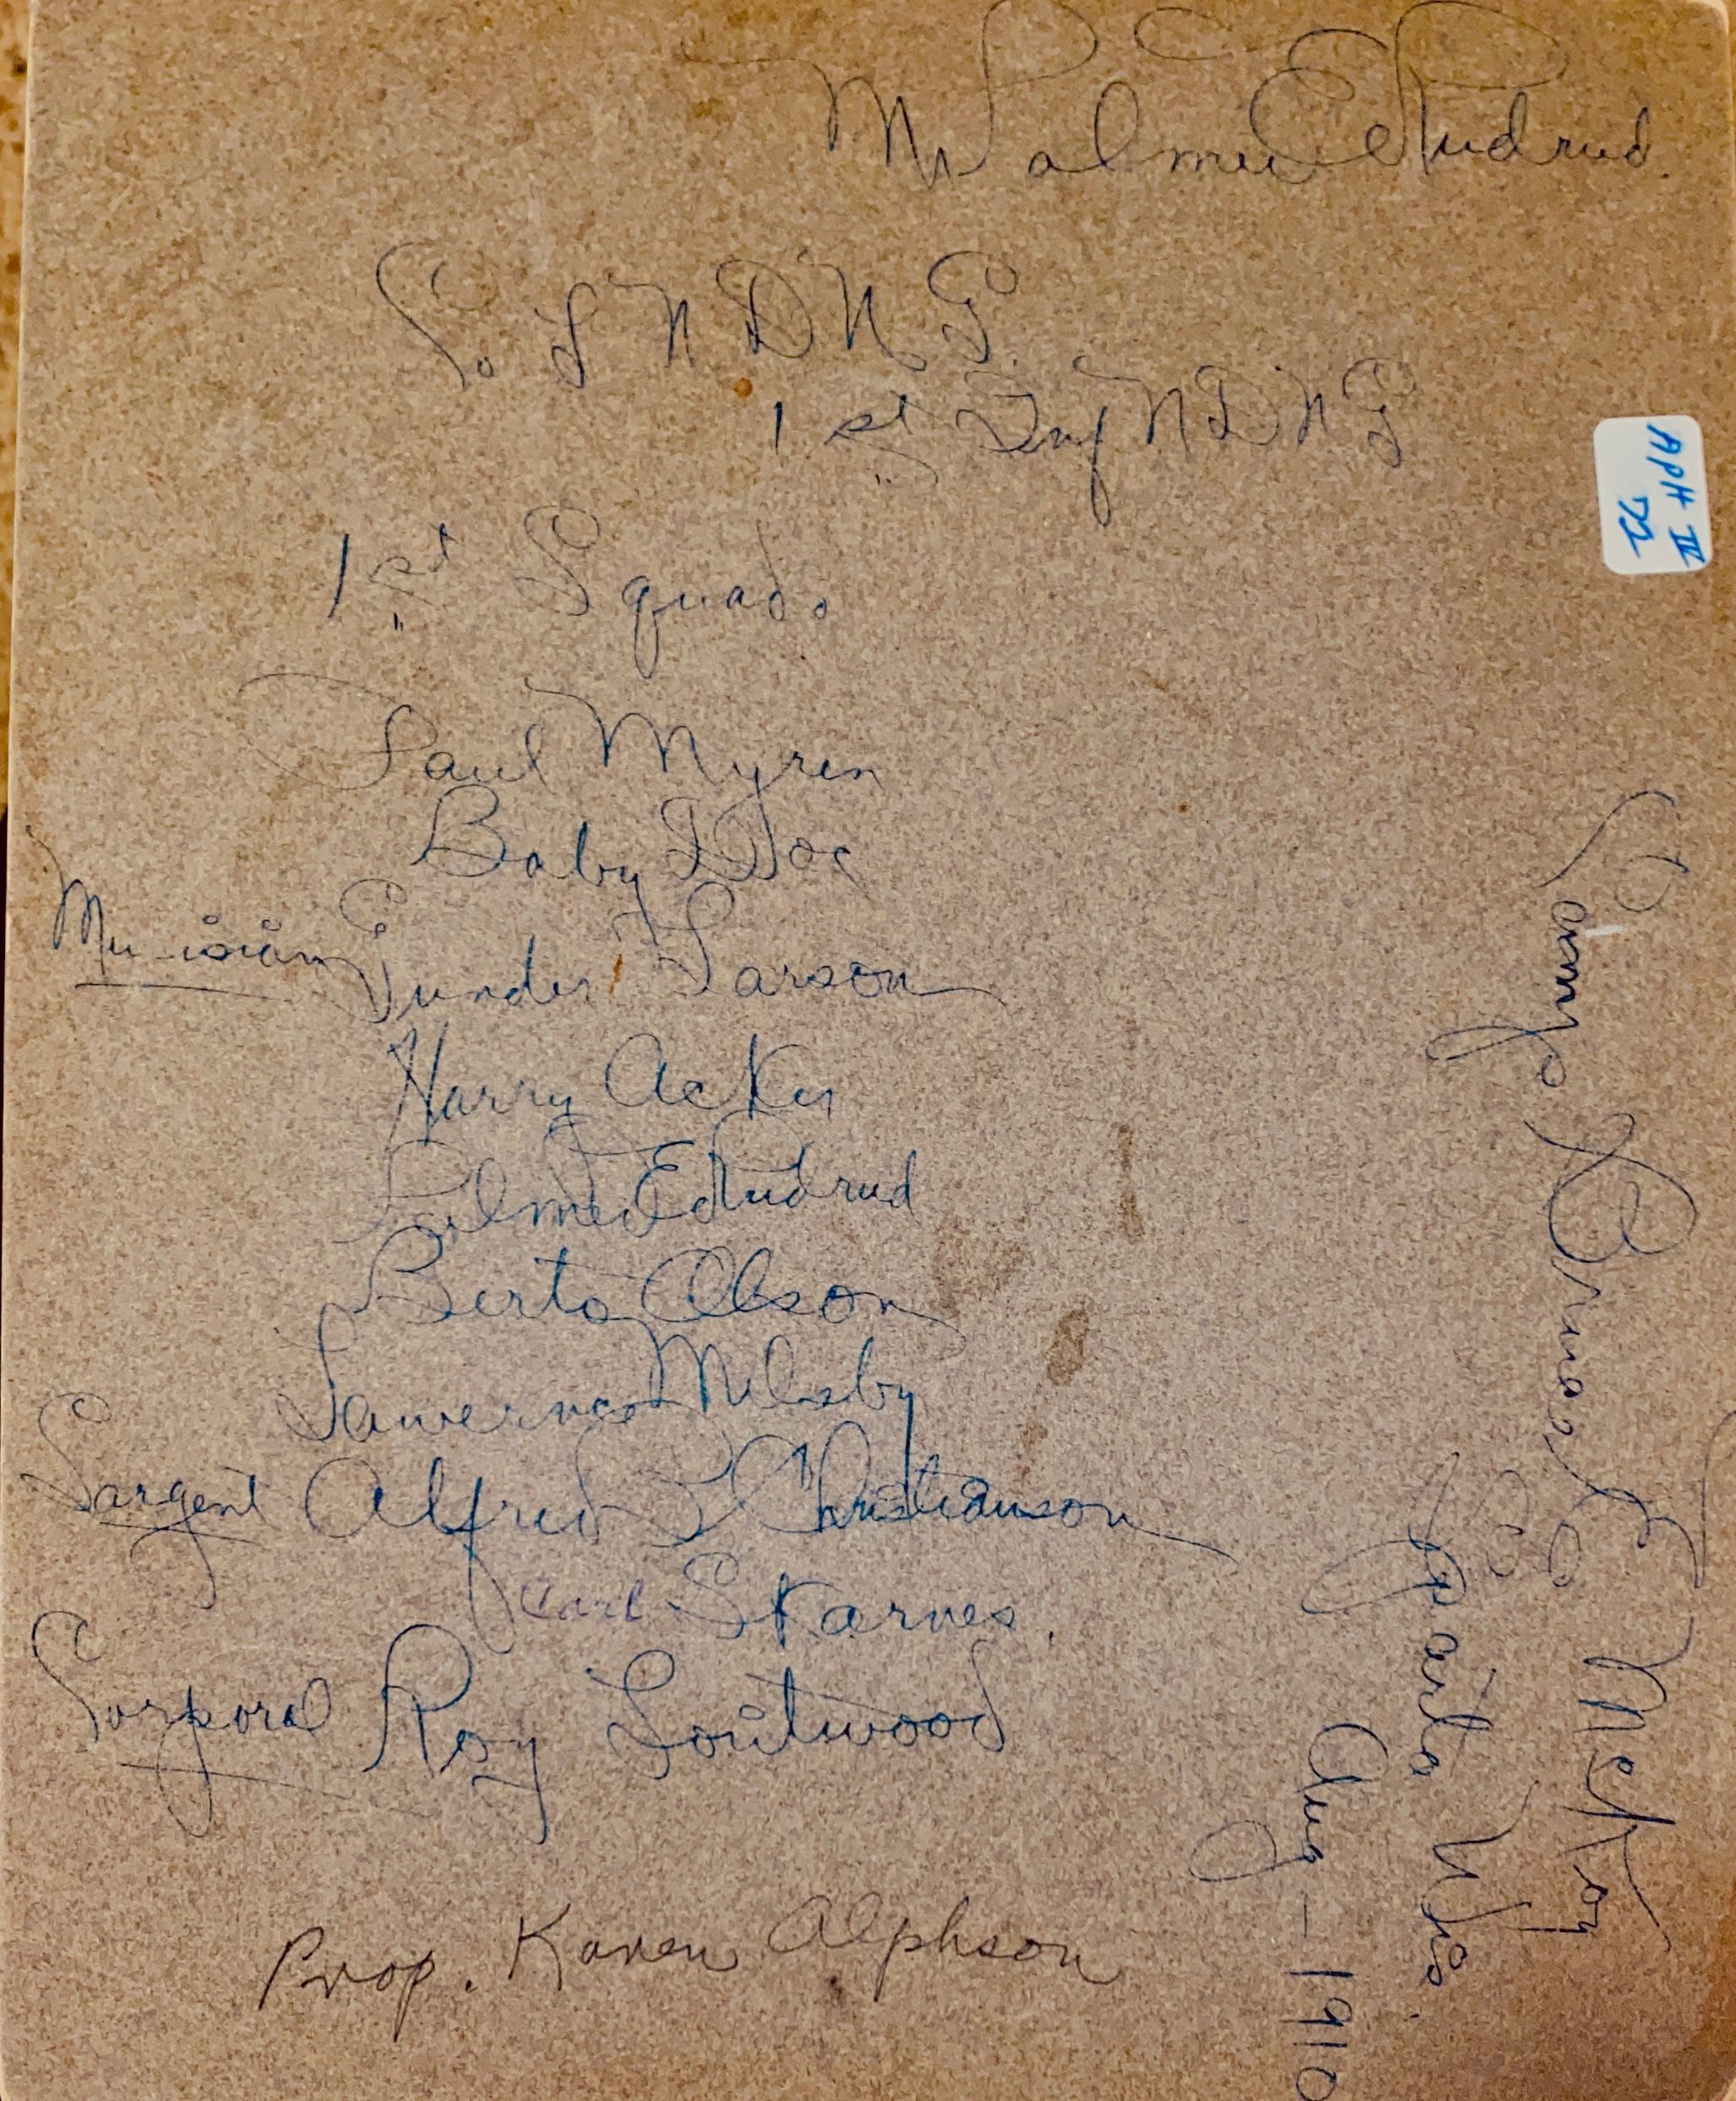 Mr Palmer E Rudrud.
Co. I N D N G.
1st Inf N D N G
1st Squad.
Paul Myren
Baby Doc
Musician Gunder Larson
Harry Acker
Palmer E Rudrud
Berto Olson
Lawernce Milsby
Sargent Alfred Christianson
Carl Skarnes.
Corporal Roy Loutwood
Prop. Karen Alphson
Camp Bruce E McKoy
Sparta Wis.
Aug - 1910
APH III
72